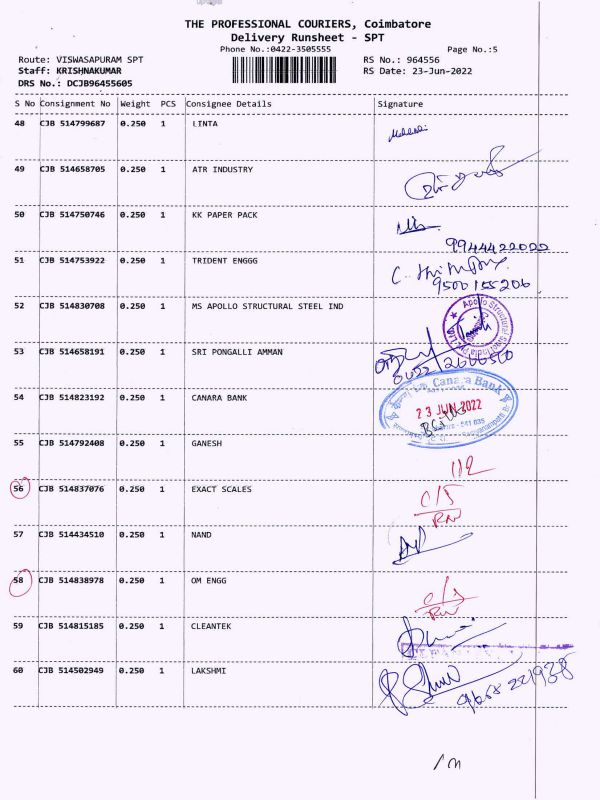 THE PROFESSIONAL COURIERS, Coimbatore
Delivery Runsheet - SPT
Phone No.:0422-3505555
Page No.:5
Route: VISWASAPURAM SPT
RS No.: 964556
Staff: KRISHNAKUMAR
RS Date: 23-Jun-2022
DRS No.: DCJB96455605
S No Consignment No Weight PCS Consignee Details Signature
48 CJB 514799687 0.250 1 LINTA
49 CJB 514658705 0.250 1 ATR INDUSTRY
50 CJB 514750746 0.250 1 KK PAPER PACK
9944422022
51 CJB 514753922 0.250 1 TRIDENT ENGGG
9500155206
52 CJB 514830708 0.250 1 MS APOLLO STRUCTURAL STEEL IND
Apollo Structural Steel India Pvt Ltd
53 CJB 514658191 0.250 1 SRI PONGALLI AMMAN
54 CJB 514823192 0.250 1 CANARA BANK
Canara Bank
23 JUN 2022
641 035
55 CJB 514792408 0.250 1 GANESH
56 CJB 514837076 0.250 1 EXACT SCALES
57 CJB 514434510 0.250 1 NAND
58 CJB 514838978 0.250 1 OM ENGG
59 CJB 514815185 0.250 1 CLEANTEK
60 CJB 514502949 0.250 1 LAKSHMI